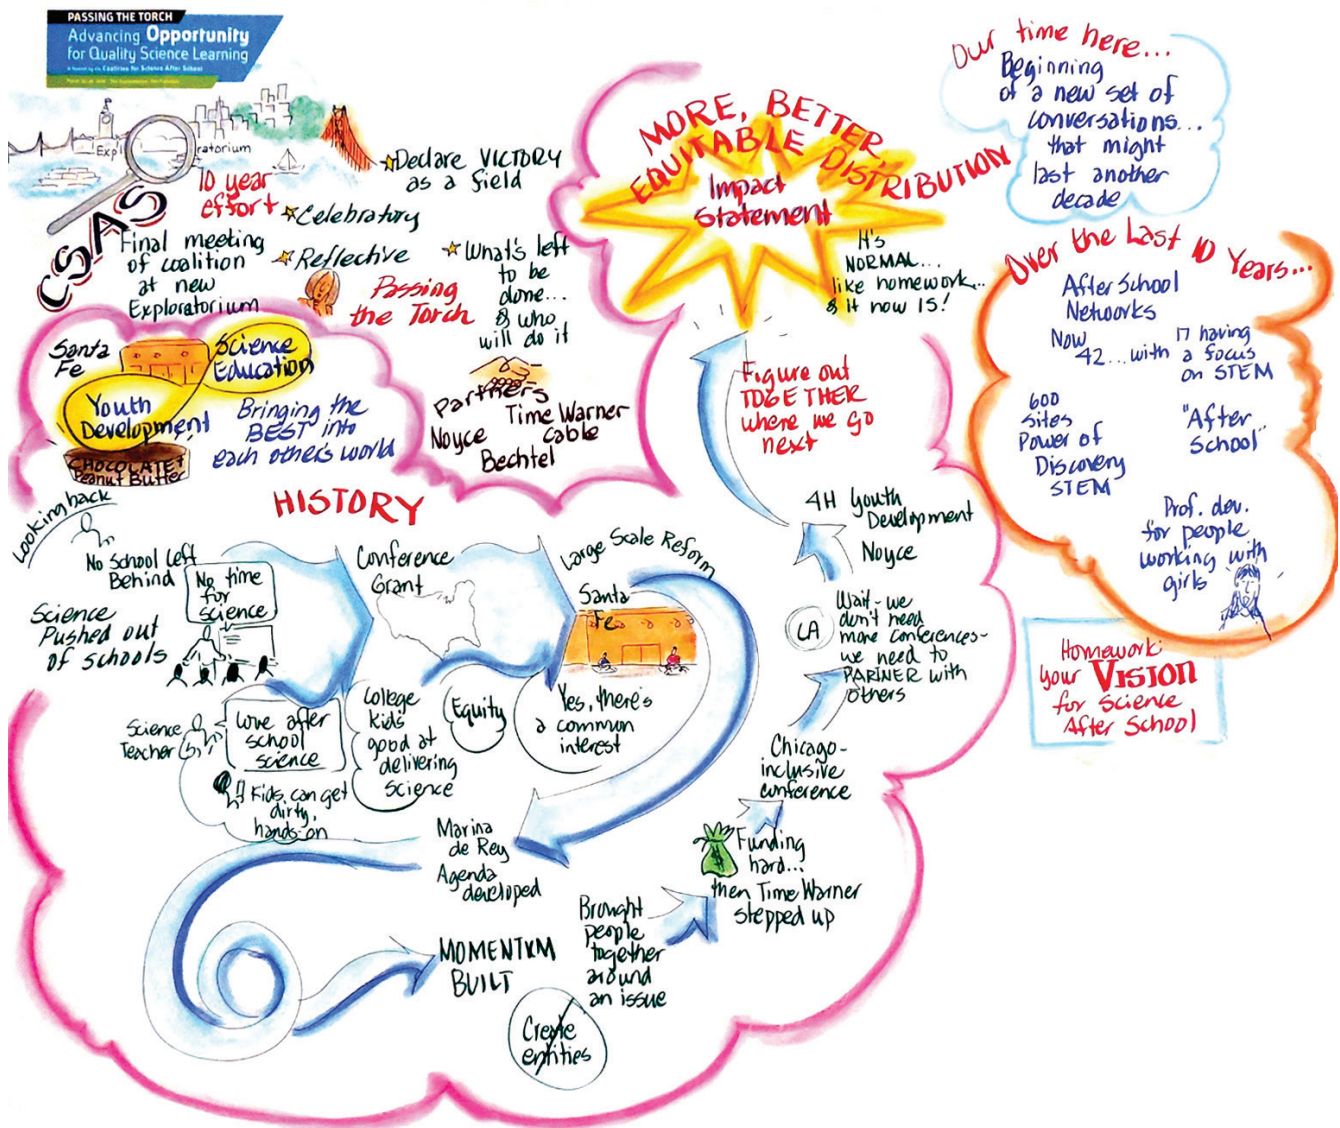 PASSING THE TORCH
Advancing Opportunity
for Quality Science Learning
CSAS
10 year
effort
Final meeting
of coalition
at new
Exploratorium
Declare VICTORY
as a field
Celebratory
Reflective
Passing
the Torch
What's left
to be
done...
& who
will do it
Partners
Time Warner
Cable
Noyce
Bechtel
Santa
Fe
Science
Education
Youth
Development
CHOCOLATE +
Peanut Butter
Bringing the
BEST into
each others world
MORE, BETTER,
EQUITABLE DISTRIBUTION
Impact
Statement
It's
NORMAL...
like homework...
& it now IS!
Figure out
TOGETHER
where we go
next
Our time here...
Beginning
of a new set of
conversations...
that might
last another
decade
Over the Last 10 Years...
AfterSchool
Networks
Now
42...with
17 having
a focus
on STEM
600
Sites
Power of
Discovery
STEM
"After
School"
Prof. dev.
for people
working with
girls
Homework:
your VISION
for Science
After School
HISTORY
Looking back
No School Left
Behind
No time
for
science
Science
Pushed out
of schools
Conference
Grant
Large Scale Reform
Santa
Fe
Science
Teacher
Love after
school
science
Kids can get
dirty,
hands-on
College
kids
good at
delivering
science
Equity
Yes, there's
a common
interest
Marina
de Rey
Agenda
developed
MOMENTUM
BUILT
Create
entities
Brought
people
together
around
an issue
Funding
hard...
then Time Warner
stepped up
Chicago-
inclusive
conference
LA
Wait-we
don't need
more conferences-
we need to
PARTNER with
others
4H Youth
Development
Noyce